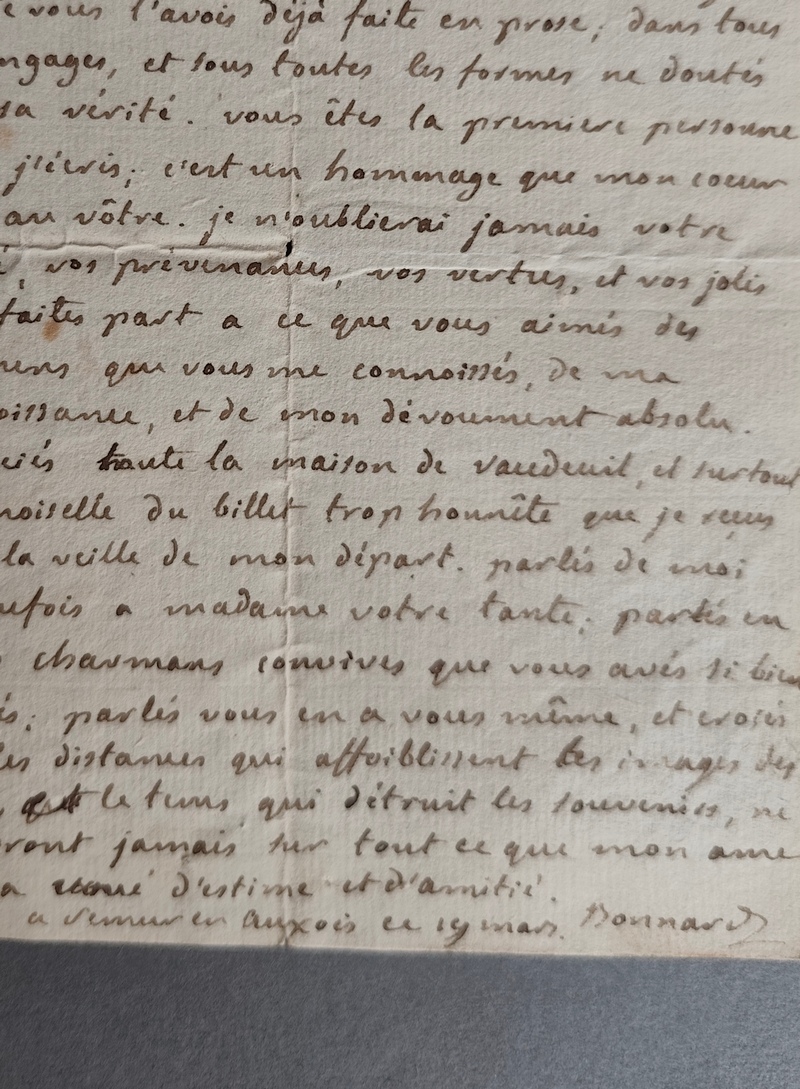 e vous l'avois déjà faite en prose; dans tous
ngages, et sous toutes les formes ne doutés
sa vérité. vous êtes la premiere personne
j'écris; c'est un hommage que mon coeur
au vôtre. je n'oublierai jamais votre
é, vos prévenances, vos vertus, et vos jolis
faites part a ce que vous aimés des
mens que vous me connoissés, de ma
oissance, et de mon dévoument absolu.
ciés toute la maison de vaudeuil, et surtout
moiselle du billet trop honnête que je reçus
la veille de mon départ. parlés de moi
uefois a madame votre tante; parlés en
charmans convives que vous avés si bien
és; parlés vous en a vous même, et croiés
les distances qui affoiblissent les images des
, et le tems qui détruit les souvenirs, ne
ront jamais sur tout ce que mon ame
a voué d'estime et d'amitié.
a Semur en Auxois ce 19 mars. Bonnard